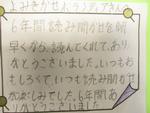 よみきかせボランティアさん
6年間読み聞かせを朝
早くから、読んでくれて、あり
がとうございました。いつもお
もしろくて、いつも読み聞かせ
が楽しみでした。6年間あ
りがとうございました